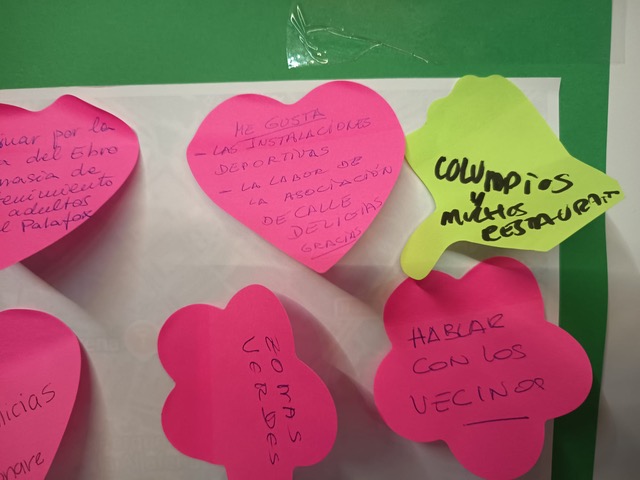 inar por la
a del Ebro
nasia de
tenimiento
adultos
el Palafox
ME GUSTA
- LAS INSTALACIONES
DEPORTIVAS
- LA LABOR DE
LA ASOCIACIÓN
DE CALLE
DELICIAS
GRACIAS
COLUMPIOS
Y
MUCHOS
RESTAURAN
licias
onare
ZONAS
VERDES
HABLAR
CON LOS
VECINOS